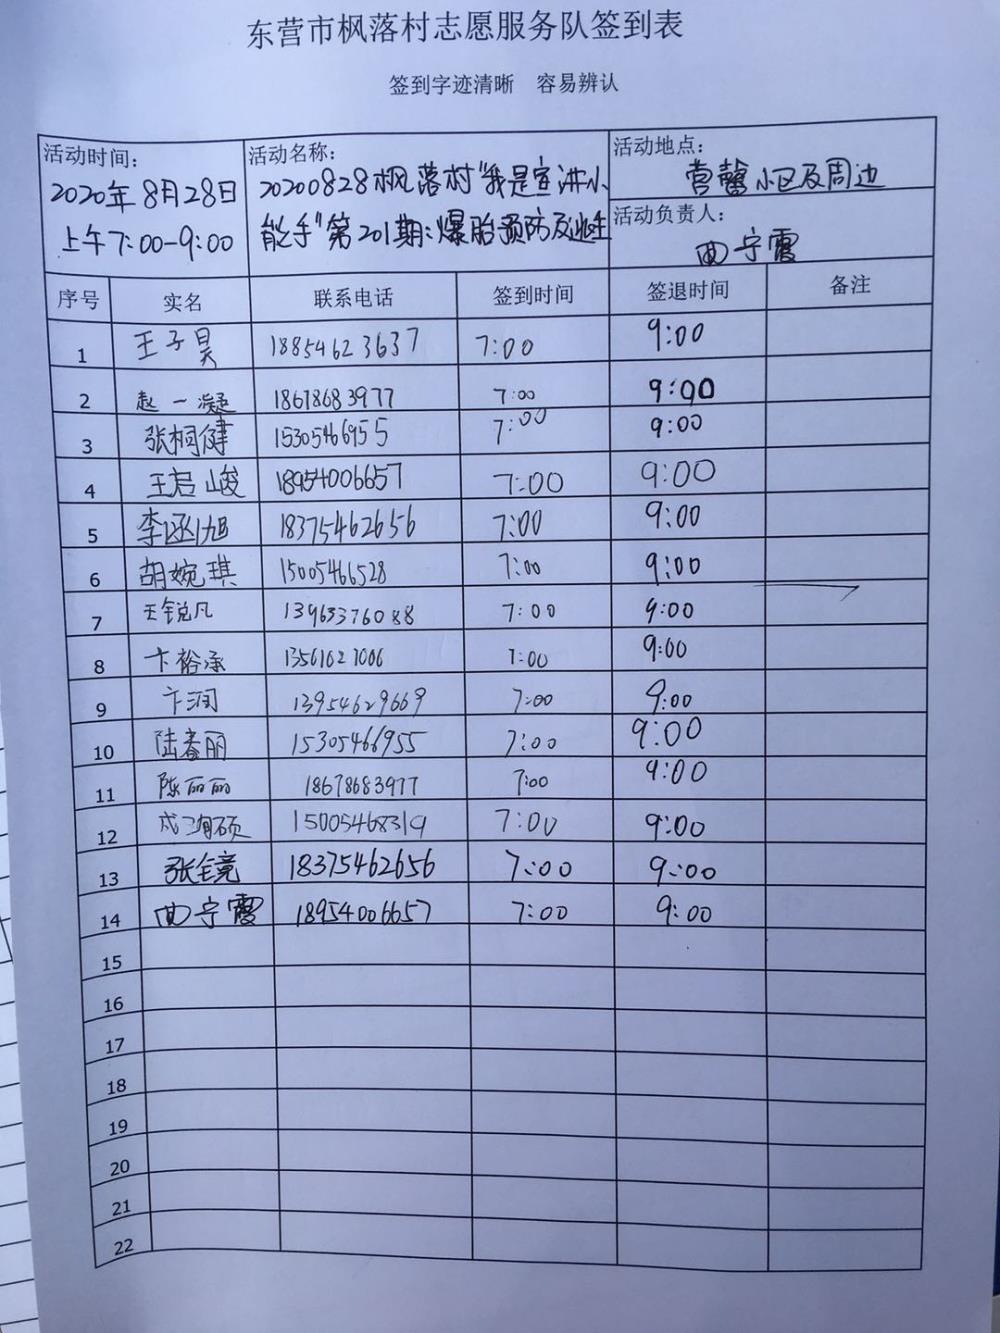 东营市枫落村志愿服务队签到表
签到字迹清晰 容易辨认
活动时间:
2020年8月28日
上午7:00-9:00
活动名称:
20200828枫落村"我是宣讲小
能手"第201期:爆胎预防及逃生
活动地点:
营馨小区及周边
活动负责人:
曲宁霞
序号 实名 联系电话 签到时间 签退时间 备注
1 王子昊 18854623637 7:00 9:00
2 赵一凝 18678683977 7:00 9:00
3 张桐健 15305466955 7:00 9:00
4 王启峻 18954006657 7:00 9:00
5 李涵旭 18375462656 7:00 9:00
6 胡婉琪 15005466528 7:00 9:00
7 王锐凡 13963376088 7:00 9:00
8 卞裕 13561621006 7:00 9:00
9 卞润 13954629669 7:00 9:00
10 陆春丽 15305466955 7:00 9:00
11 陈丽丽 18678683977 7:00 9:00
12 硕 15005468319 7:00 9:00
13 张全竟 18375462656 7:00 9:00
14 曲宁霞 18954006657 7:00 9:00
15
16
17
18
19
20
21
22